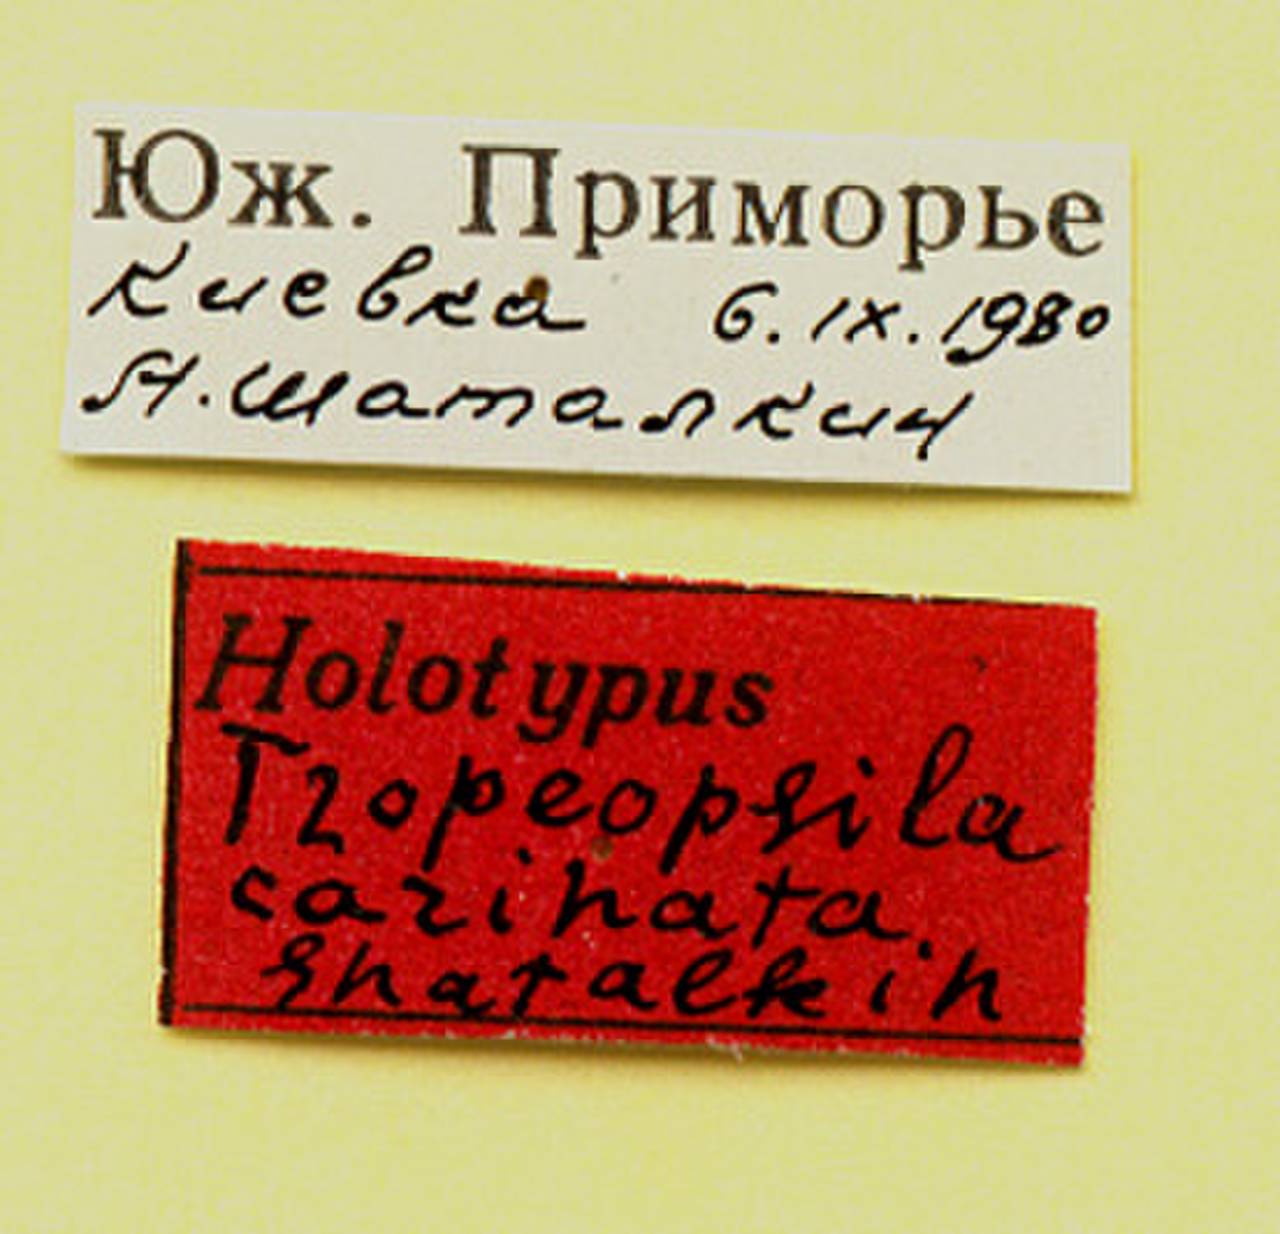 Юж. Приморье
Киевка 6.IX.1980
А.Шаталкин
Holotypus
Tropeopsila
carinata.
Shatalkin